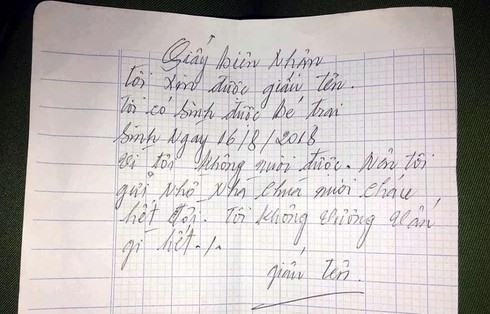 Giấy biên Nhận
tôi xin được giấu tên.
tôi có sinh được Bé trai
sinh Ngày 16/8/2018
vì tôi không nuôi được. Nên tôi
gửi Nhờ Nhà chùa nuôi cháu
hết đời. tôi không vướng
gì hết./.
giấu tên.